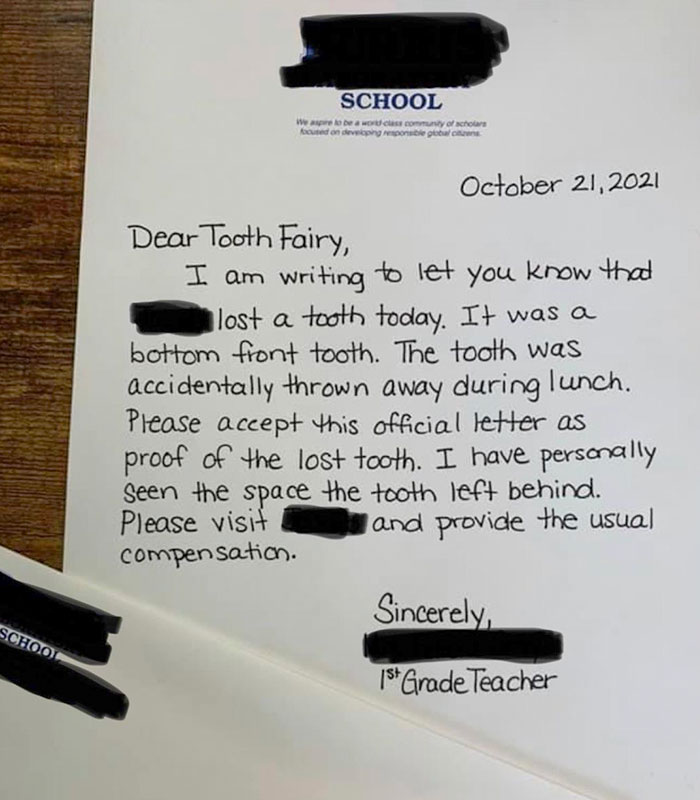 SCHOOL
We aspire to be a world-class community of scholars
focused on developing responsible global citizens.
October 21, 2021
Dear Tooth Fairy,
I am writing to let you know that
lost a tooth today. It was a
bottom front tooth. The tooth was
accidentally thrown away during lunch.
Please accept this official letter as
proof of the lost tooth. I have personally
seen the space the tooth left behind.
Please visit and provide the usual
compensation.
Sincerely,
1st Grade Teacher
SCHOOL